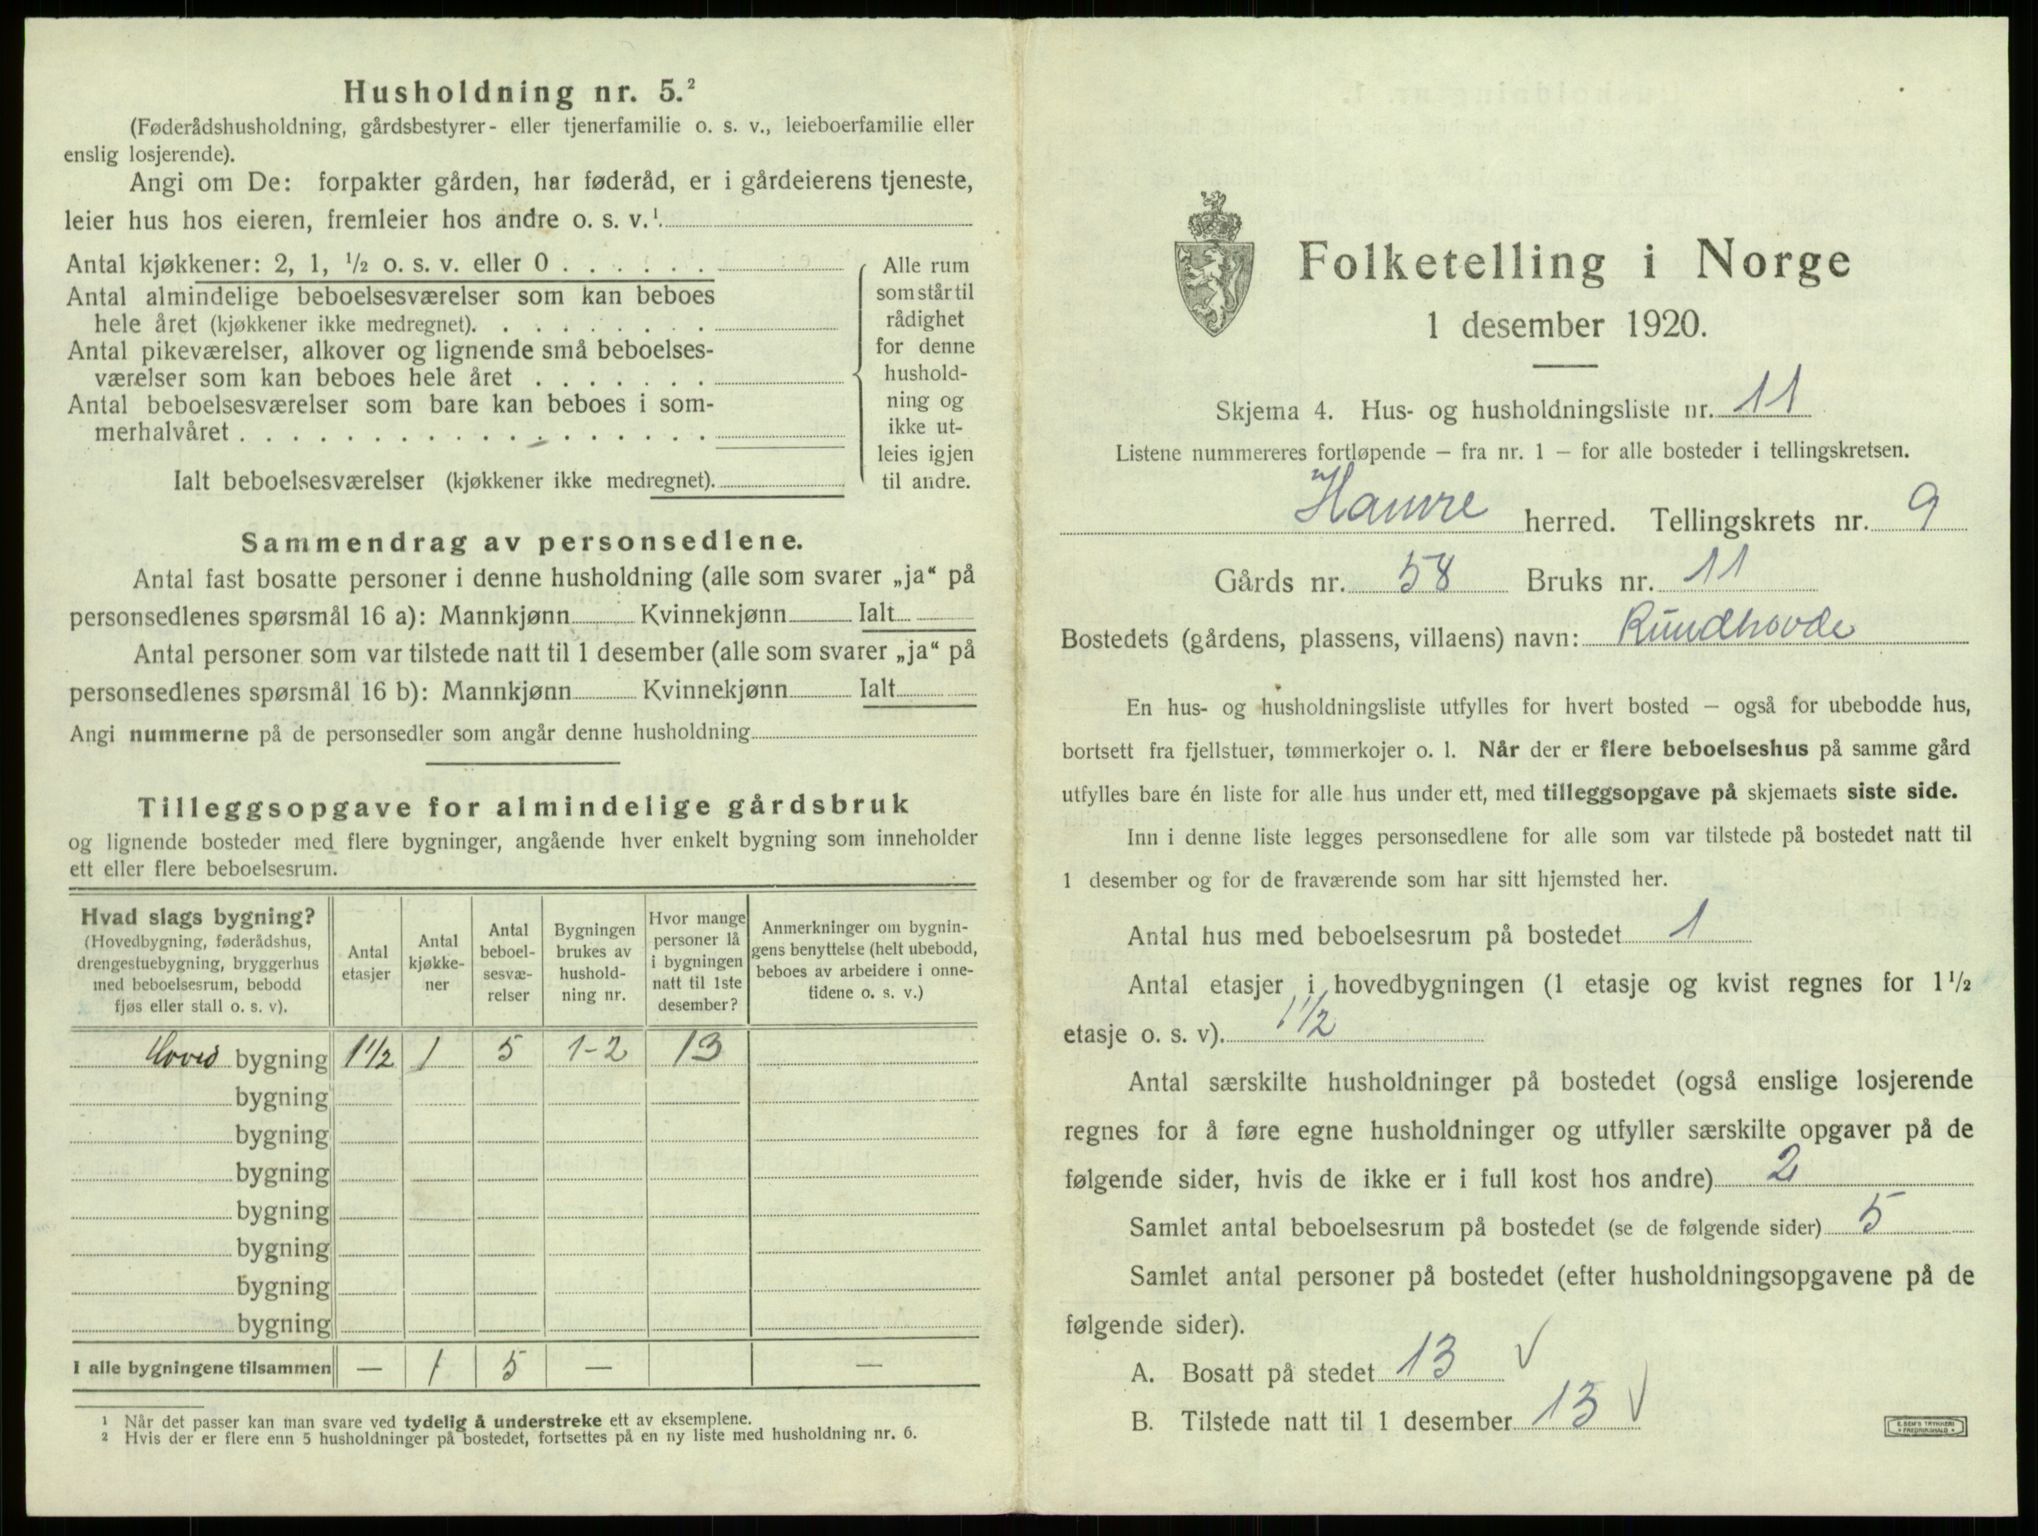 Husholdning nr. 5.²
(Føderådshusholdning, gårdsbestyrer- eller tjenerfamilie o. s. v., leieboerfamilie eller
enslig losjerende).
Angi om De: forpakter gården, har føderåd, er i gårdeierens tjeneste,
leier hus hos eieren, fremleier hos andre o. s. v.¹
Antal kjøkkener: 2, 1, ½ o. s. v. eller 0
Antal almindelige beboelsesværelser som kan beboes
hele året (kjøkkener ikke medregnet)
Antal pikeværelser, alkover og lignende små beboelses-
værelser som kan beboes hele året
Antal beboelsesværelser som bare kan beboes i som-
merhalvåret
Ialt beboelsesværelser (kjøkkener ikke medregnet)
Alle rum
som står til
rådighet
for denne
hushold-
ning og
ikke ut-
leies igjen
til andre.
Sammendrag av personsedlene.
Antal fast bosatte personer i denne husholdning (alle som svarer „ja“ på
personsedlenes spørsmål 16 a): Mannkjønn Kvinnekjønn Ialt
Antal personer som var tilstede natt til 1 desember (alle som svarer „ja“ på
personsedlenes spørsmål 16 b): Mannkjønn Kvinnekjønn Ialt
Angi nummerne på de personsedler som angår denne husholdning
Tilleggsopgave for almindelige gårdsbruk
og lignende bosteder med flere bygninger, angående hver enkelt bygning som inneholder
ett eller flere beboelsesrum.
Hvad slags bygning?
(Hovedbygning, føderådshus,
drengestuebygning, bryggerhus
med beboelsesrum, bebodd
fjøs eller stall o. s. v).
Antal
etasjer
Antal
kjøkke-
ner
Antal
beboel-
sesvæ-
relser
Bygningen
brukes av
hushold-
ning nr.
Hvor mange
personer lå
i bygningen
natt til 1ste
desember?
Anmerkninger om bygnin-
gens benyttelse (helt ubebodd,
beboes av arbeidere i onne-
tidene o. s. v.)
Hoved bygning 1½ 1 5 1-2 13
bygning
bygning
bygning
bygning
bygning
bygning
bygning
I alle bygningene tilsammen — 1 5 — —
¹ Når det passer kan man svare ved tydelig å understreke ett av eksemplene.
² Hvis der er flere enn 5 husholdninger på bostedet, fortsettes på en ny liste med husholdning nr. 6.
Folketelling i Norge
1 desember 1920.
Skjema 4. Hus- og husholdningsliste nr. 11
Listene nummereres fortløpende – fra nr. 1 – for alle bosteder i tellingskretsen.
Hamre herred. Tellingskrets nr. 9
Gårds nr. 58 Bruks nr. 11
Bostedets (gårdens, plassens, villaens) navn: Rundhovde
En hus- og husholdningsliste utfylles for hvert bosted – også for ubebodde hus,
bortsett fra fjellstuer, tømmerkojer o. l. Når der er flere beboelseshus på samme gård
utfylles bare én liste for alle hus under ett, med tilleggsopgave på skjemaets siste side.
Inn i denne liste legges personsedlene for alle som var tilstede på bostedet natt til
1 desember og for de fraværende som har sitt hjemsted her.
Antal hus med beboelsesrum på bostedet 1
Antal etasjer i hovedbygningen (1 etasje og kvist regnes for 1½
etasje o. s. v). 1½
Antal særskilte husholdninger på bostedet (også enslige losjerende
regnes for å føre egne husholdninger og utfyller særskilte opgaver på de
følgende sider, hvis de ikke er i full kost hos andre) 2
Samlet antal beboelsesrum på bostedet (se de følgende sider) 5
Samlet antal personer på bostedet (efter husholdningsopgavene på de
følgende sider).
A. Bosatt på stedet 13 √
B. Tilstede natt til 1 desember 13 √
E. SEM'S TRYKKERI
FREDRIKSHALD